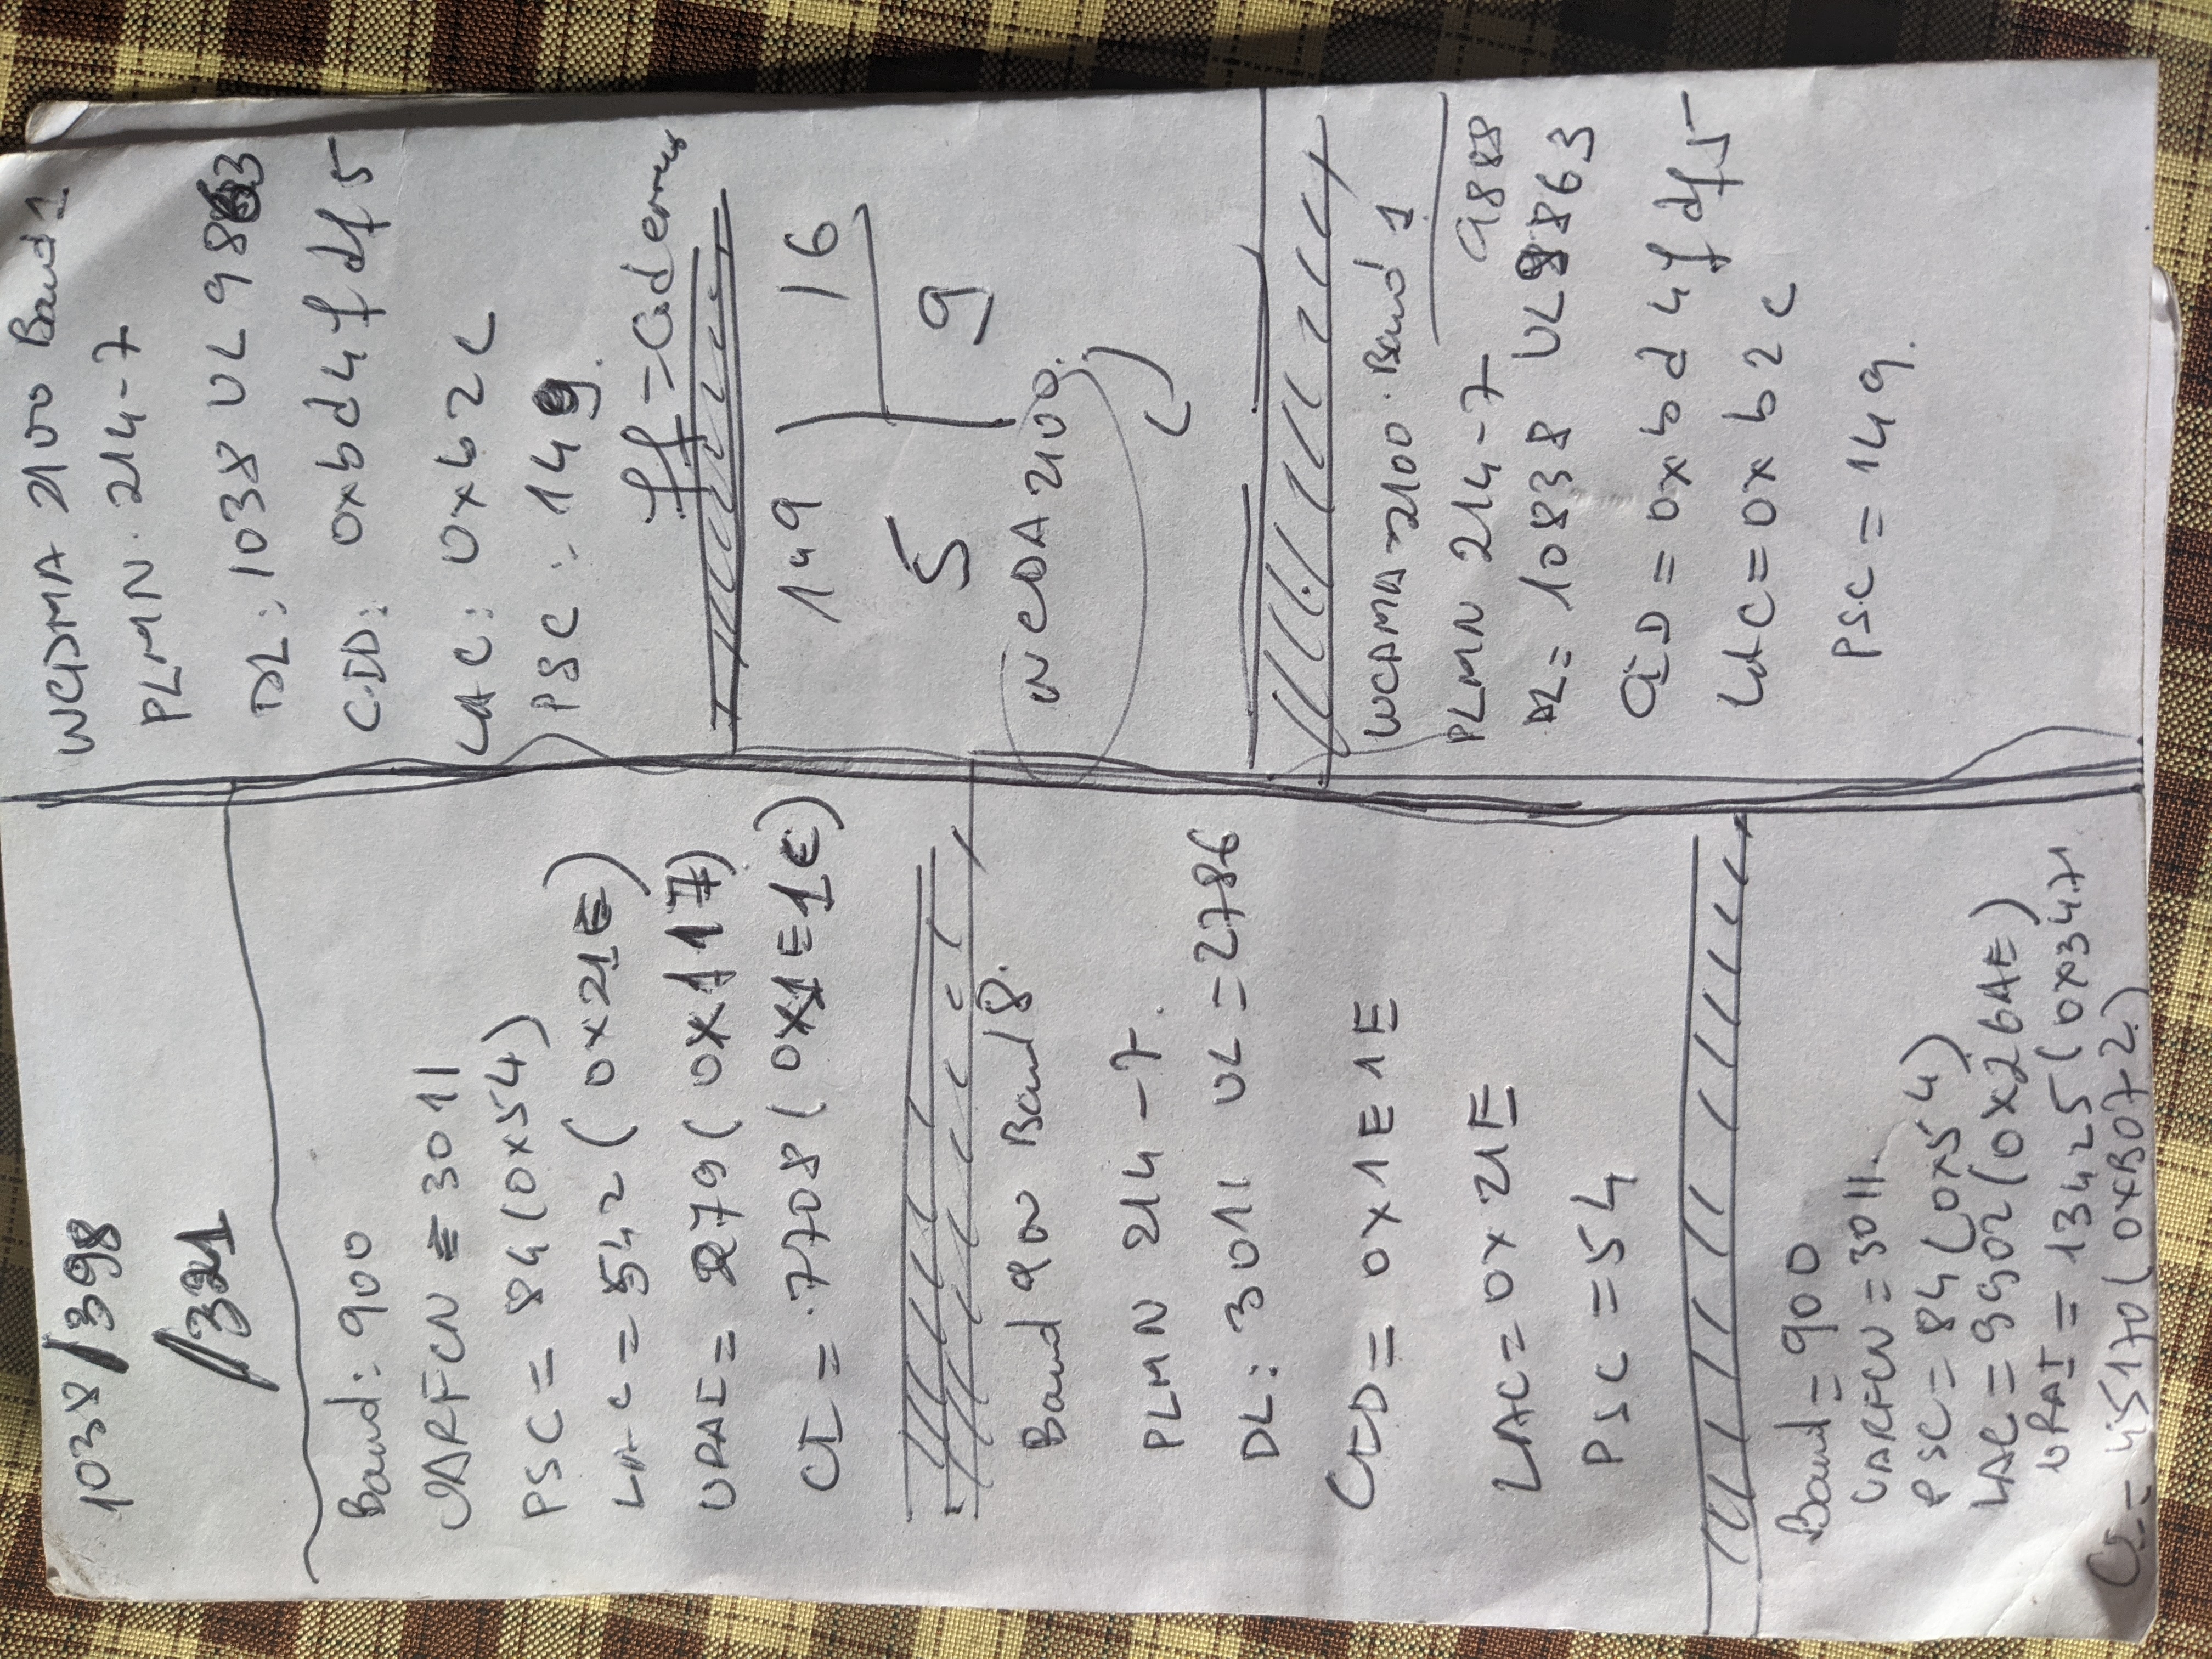 1038/398
/321
Band: 900
UARFCN = 3011
PSC = 84 (0x54)
LAC = 542 (0x21E)
URAI = 279 (0x117)
CI = 7708 (0x1E1C)
Band 900 Band 8.
PLMN 214-7.
DL: 3011 UL = 2786
CID = 0x1E1E
LAC = 0x21E
PSC = 54
Band = 900
UARFCN = 3011.
PSC = 84 (0x54)
LAC = 9902 (0x26AE)
URAI = 13425 (0x3471
CI = 45170 (0xB072)
WCDMA 2100 Band 1
PLMN. 214-7
DL: 1038 UL 9863
CID: 0xbd4fdf5
LAC: 0xb2c
PSC: 149.
149 16
5 9
WCDA 2100.
WCAMA 2100. Band 1
PLMN 214-7 9888
DL = 10838 UL 9863
CID = 0xbd4fdf5
LAC = 0xb2c
PSC = 149.